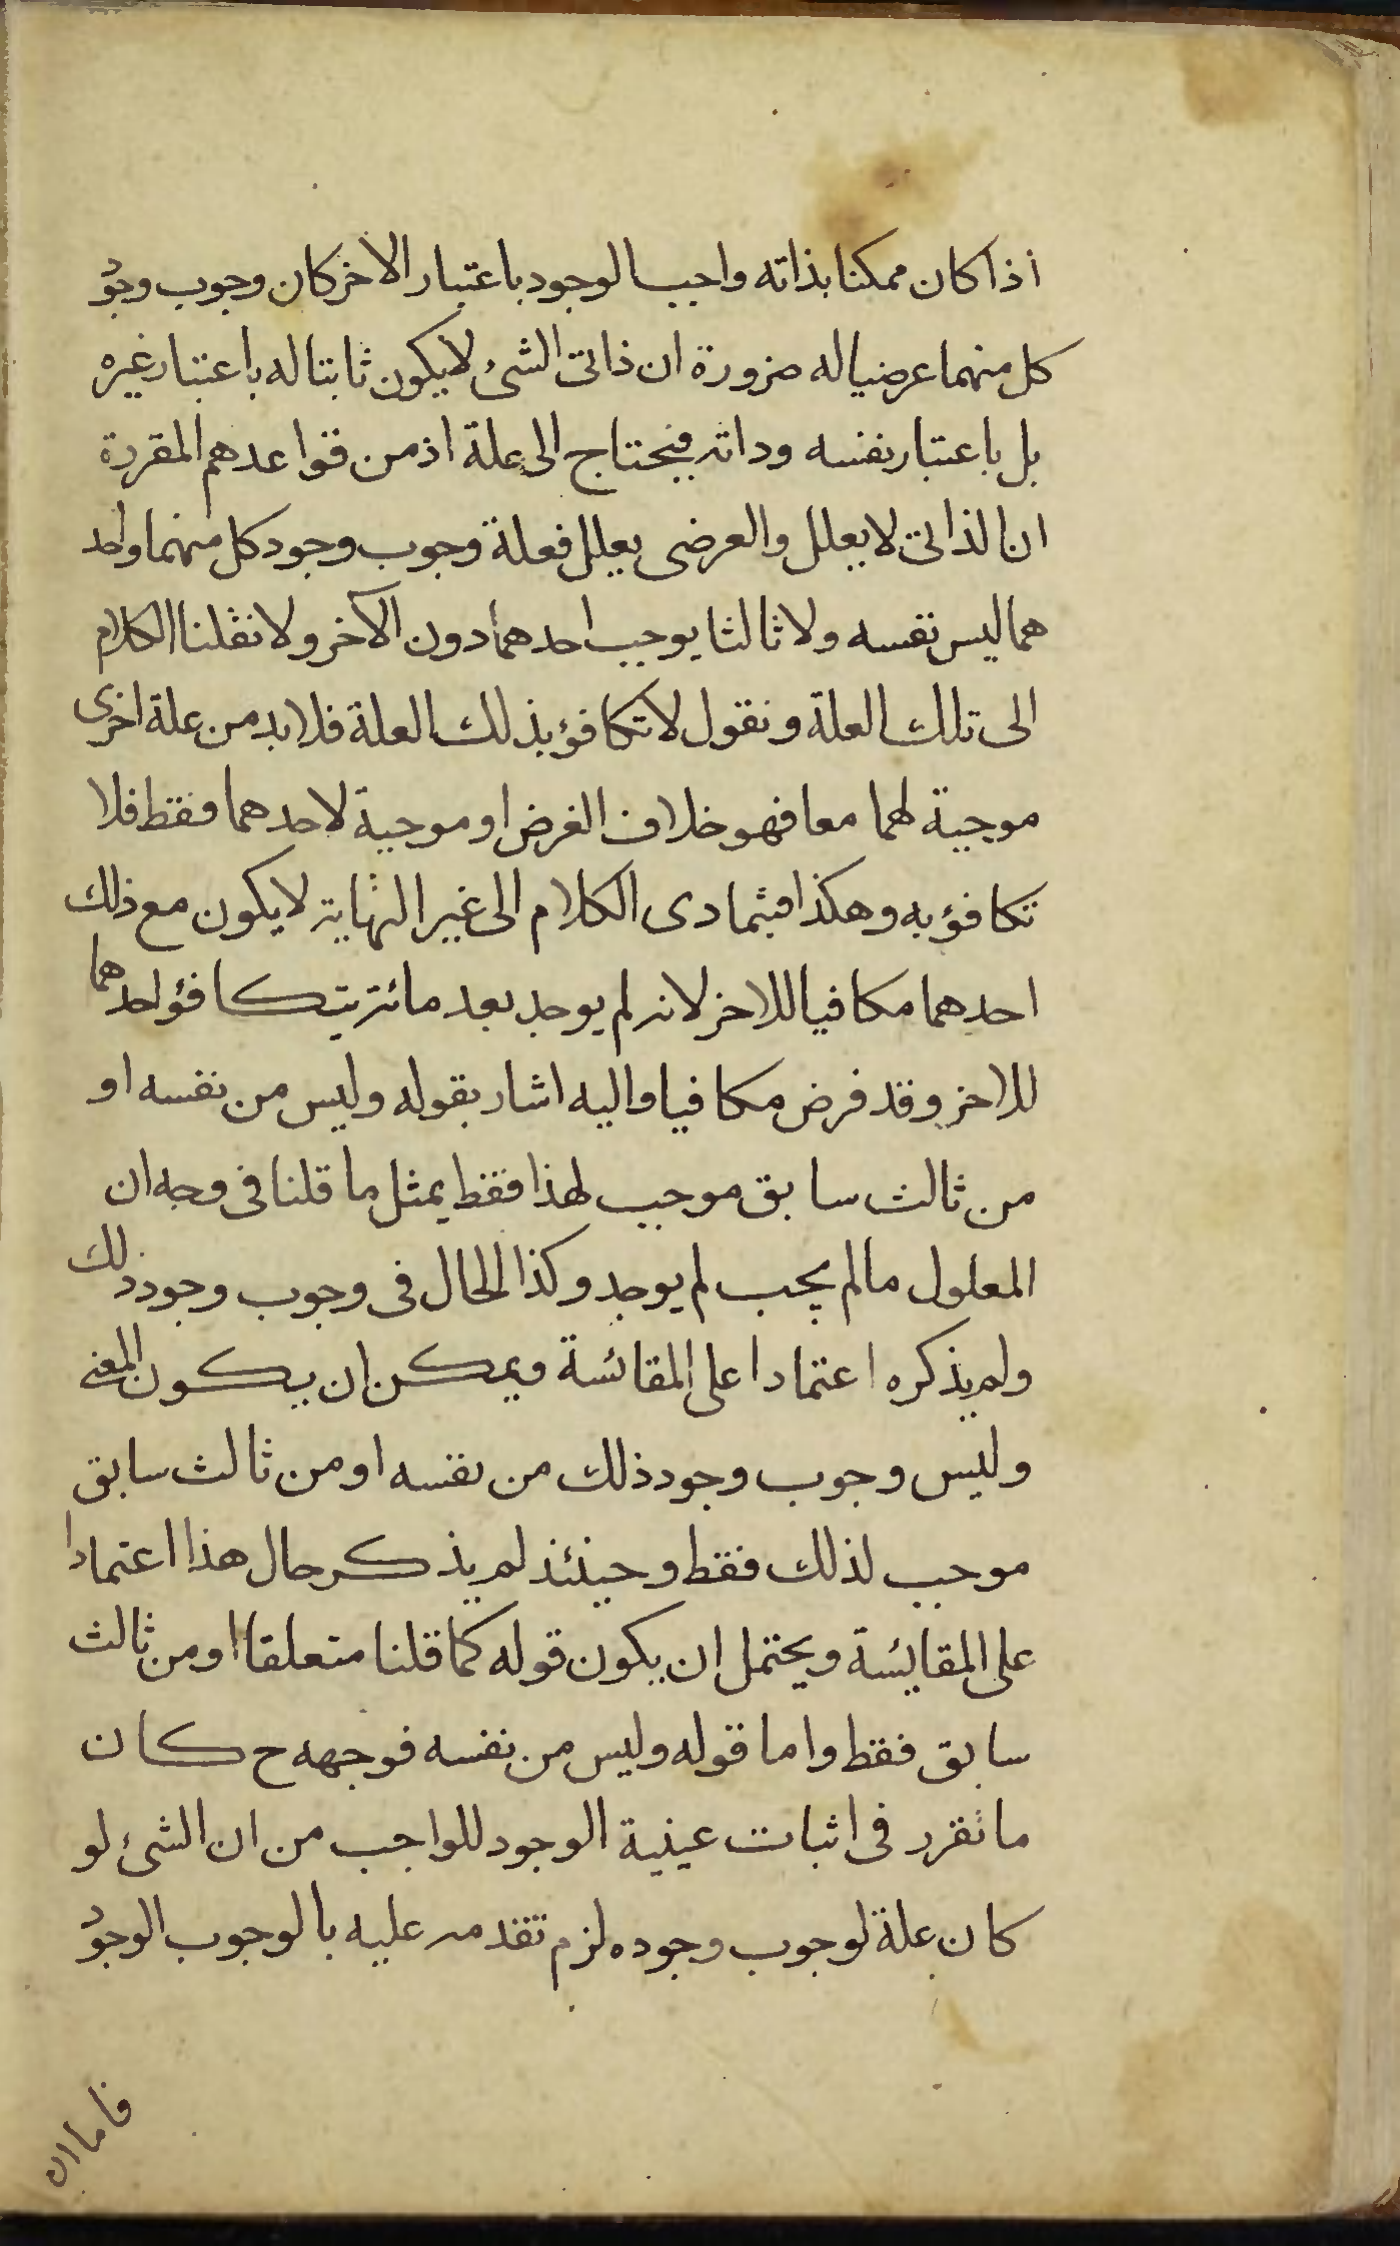 اذا كان ممكنا بذاته واجب الوجود باعتبار الاخر كان وجوب وجود
كل منهما عرضيا له ضرورة ان ذاتى الشئ لا يكون ثابتا له باعتبار غيره
بل باعتبار نفسه وذاته فيحتاج الى علة اذ من قواعدهم المقررة
ان الذاتى لا يعلل والعرضى يعلل فعلة وجوب وجود كل منهما واحد
هما ليس نفسه ولا ثالثا يوجب احدهما دون الآخر ولا نقلنا الكلام
الى تلك العلة ونقول لا تكافؤ بذلك العلة فلا بد من علة اخرى
موجبة لهما معا فهو خلاف الفرض او موجبة لاحدهما فقط فلا
تكافؤ به وهكذا فيتمادى الكلام الى غير النهاية لا يكون مع ذلك
احدهما مكافيا للاخر لانه لم يوجد بعد ما به يتكافؤ احدهما
للاخر وقد فرض مكافيا واليه اشار بقوله وليس من نفسه او
من ثالث سابق موجب لهذا فقط بمثل ما قلنا فى وجه ان
المعلول ما لم يجب لم يوجد وكذا الحال فى وجوب وجود ذلك
ولم يذكره اعتمادا على المقائسة ويمكن ان يكون المعنى
وليس وجوب وجود ذلك من نفسه او من ثالث سابق
موجب لذلك فقط وحينئذ لم يذكر حال هذا اعتمادا
على المقايسة ويحتمل ان يكون قوله كما قلنا متعلقا او من ثالث
سابق فقط واما قوله وليس من نفسه فوجهه ح كان
ما تقرر فى اثبات عينية الوجود للواجب من ان الشئ لو
كان علة لوجوب وجوده لزم تقدمه عليه بالوجوب الوجود
فاما ان